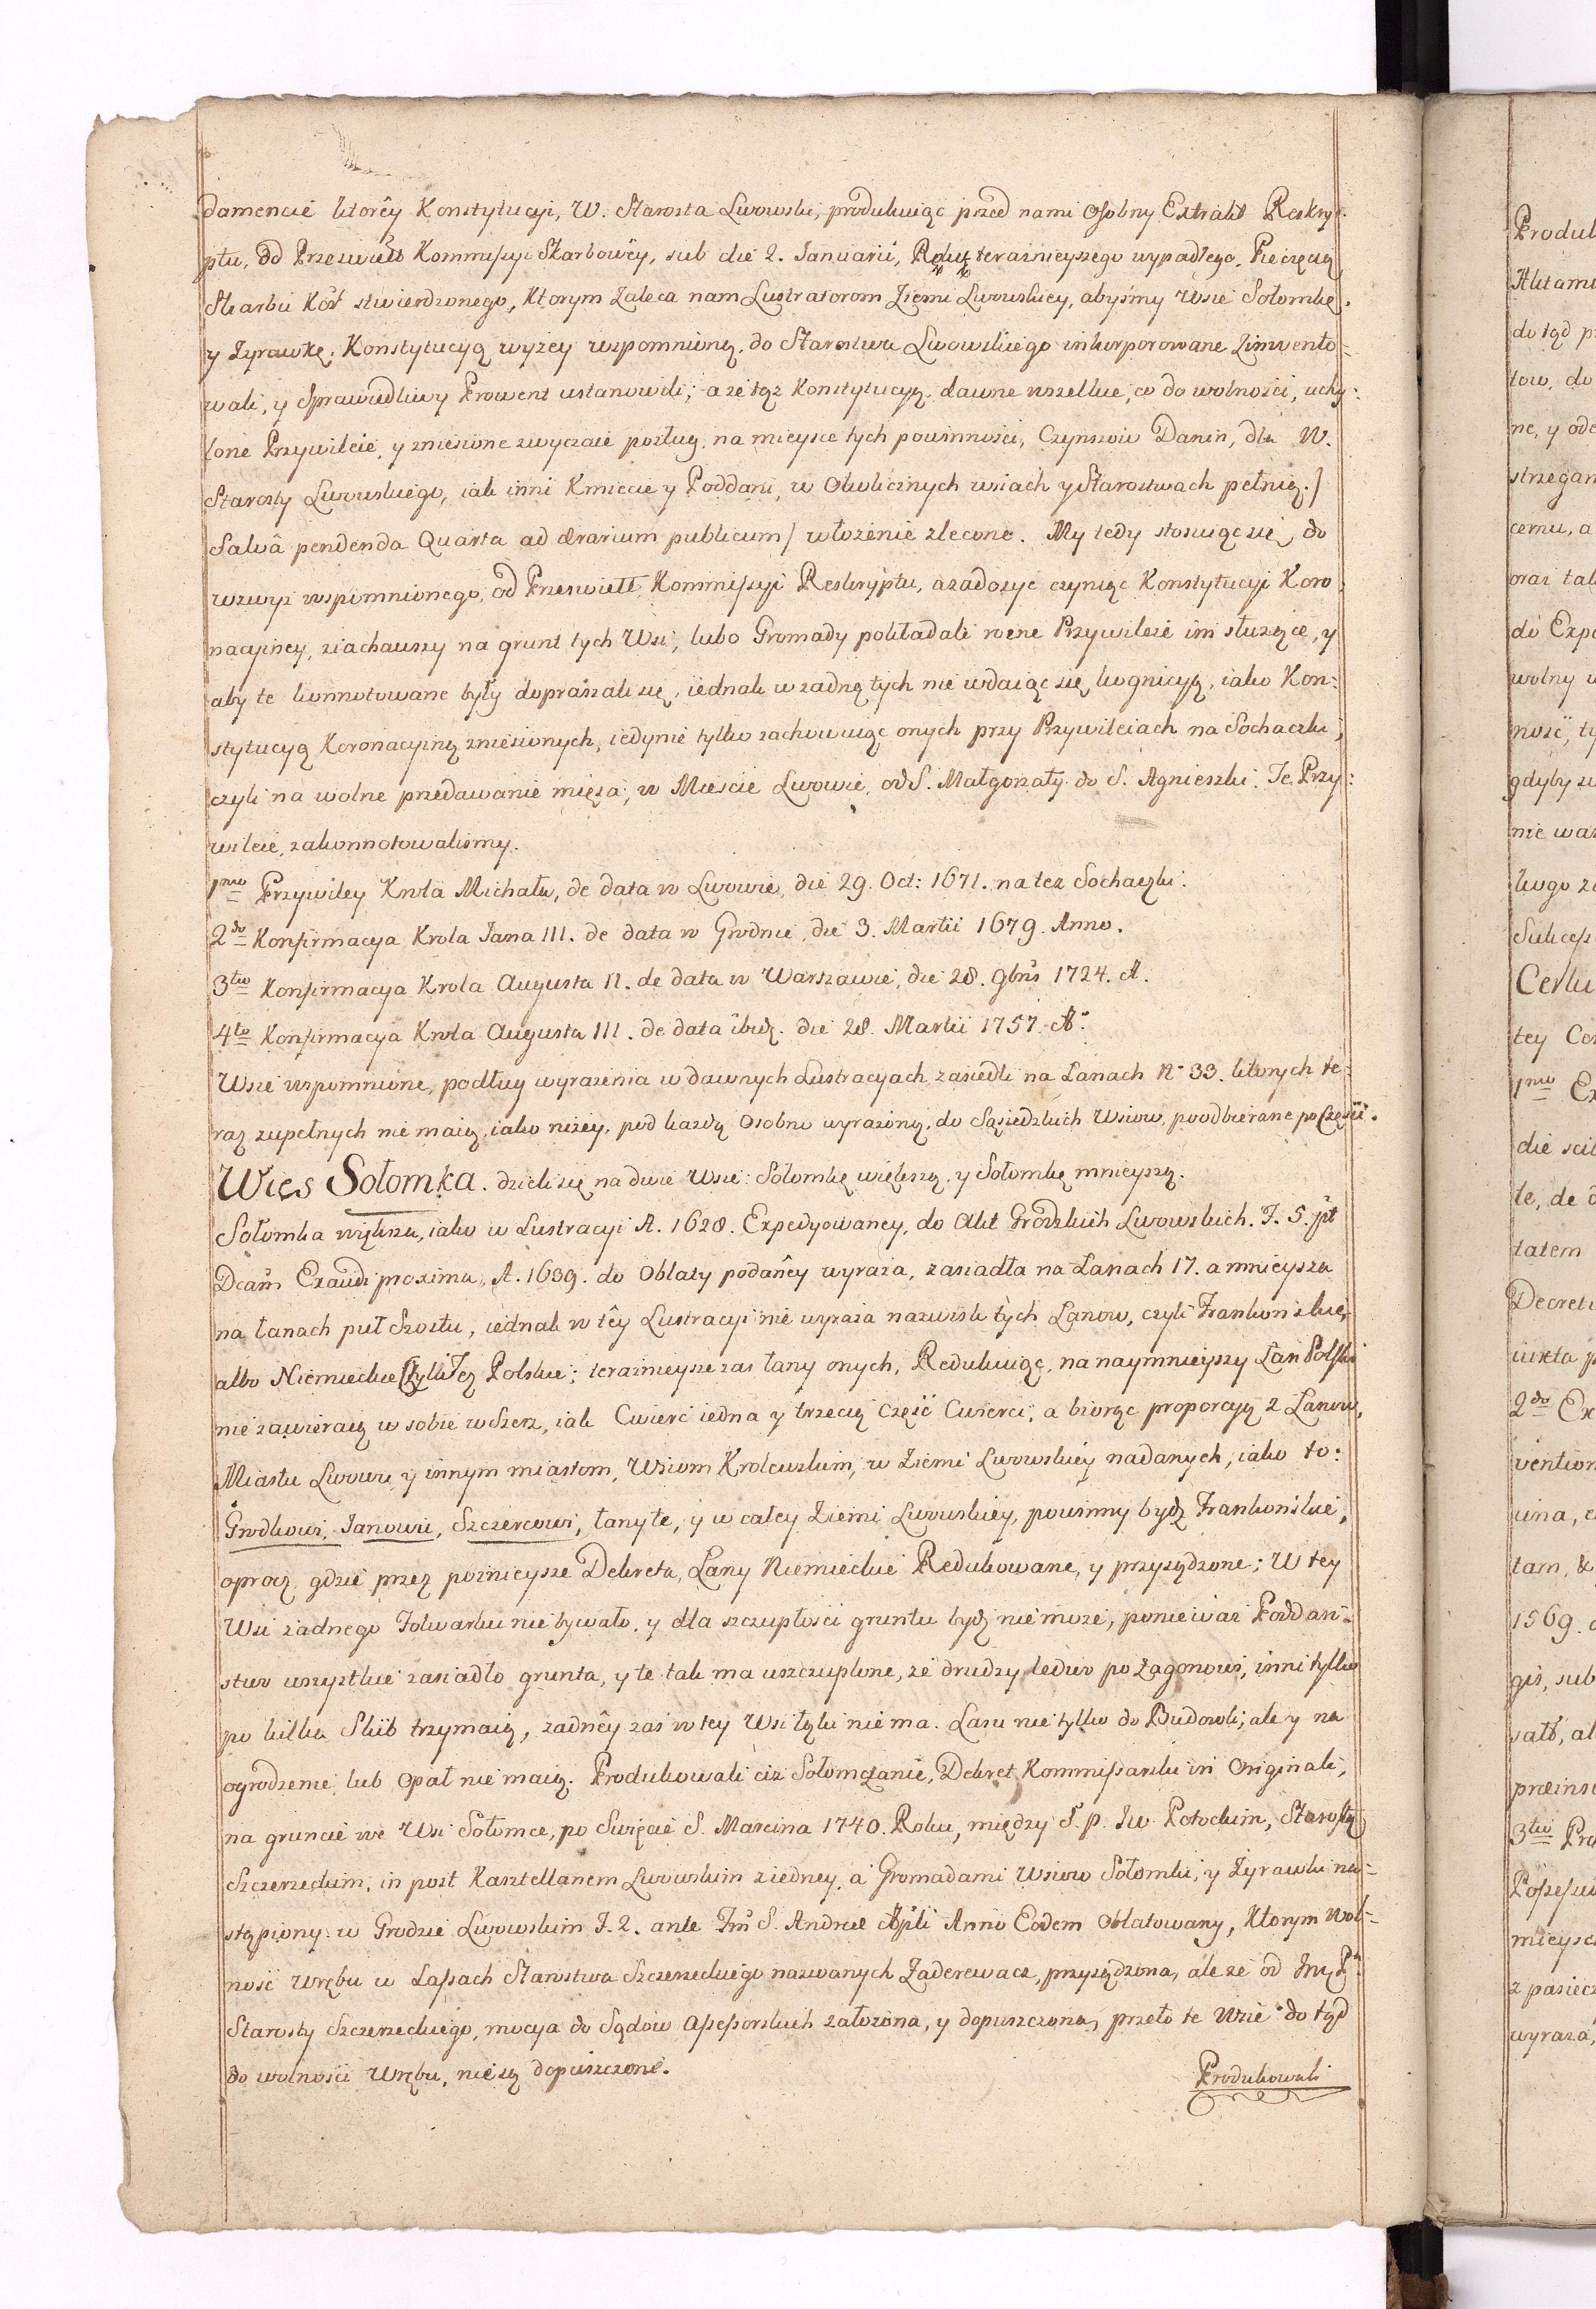 damencie ktorêy Konstytucyi, W. Starosta Lwowski, produkuiąc przed nami osobny Extrakt Reskry-
ptu, od Przeświett Kommissyi Skarbowêy, sub die 2. Januarii, Roku teraznieyszego wypadłego, Pieczęcią
Skarbu Kor̃ stwierdzonego, ktorym zaleca nam Lustratorom Ziemi Lwowskiey, abyśmy Wsie Sołomkę,
y Zyrawkę, Konstytucyą wyżey wspomnioną, do Starostwa Lwowskiego inkorporowane zinwento=
wali, y sprawiedliwy Prowent ustanowili; a że tąż Konstytucyą, dawne wszelkie, co do wolności, uchy:
lone Przywileie, y zniesione zwyczaie posług, na mieysce tych powinności, Czynszów Danin, dla W.
Starosty Lwowskiego, iak inni Kmiecie y Poddani, w okolicznych wsiach y Starostwach pełnią./
Salvâ pendenda Quarta ad ærarium publicum/ włożenie zlecone. My tedy stosuiąc się, do
wzwyż wspomnionego, od Przeświett. Kommissyi Reskryptu, a zadosyć czyniąc Konstytucyi Koro
nacyiney, ziachawszy na grunt tych Wsi, lubo Gromady pokładali rożne Przywileie im służące, y
aby te konnotowane były dopraszali się, iednak w żadną tych nie wdaiąc się kognicyą, iako Kon=
stytucyą Koronacyiną zniesionych, iedynie tylko zachowuiąc onych przy Przywileiach na Sochaczki,
czyli na wolne przedawanie mięsa, w Mieście Lwowie, od S. Małgorzaty do S. Agnieszki. Te Przy:
wileie, zakonnotowaliśmy.
1mo Przywiley Krola Michała, de data w Lwowie, die 29. Oct: 1671. na też Sochaczki.
2do Konfirmacya Krola Jana III. de data w Grodnie, die 3. Martii 1679. Anno.
3tio Konfirmacya Krola Augusta II. de data w Warszawie, die 28. 9bris 1724. A.
4to Konfirmacya Krola Augusta III. de data ibid. die 28. Martii 1757. Ao.
Wsie wspomnione, podług wyrażenia w dawnych Lustracyach, zasiedli na Łanach No 33. ktorych te=
raz zupełnych nie maią, iako niżey, pod każdą osobno wyrażoną, do Sąsiedzkich Wsiow, poodbierane po Częsci.
Wies Sołomka. dzieli się na dwie Wsie: Sołomkę większą, y Sołomkę mnieyszą.
Sołomka większa, iako w Lustracyi A. 1628. Expedyowaney, do Akt Grodzkich Lwowskich. F. 5. pt
Dcam Exaudi proxima, A. 1639. do Oblaty podanêy wyraża, zasiadła na Łanach 17. a mnieysza
na łanach puł szostu, iednak w têy Lustracyi nie wyraża nazwisk tych Łanow, czyli Frankonskie,
albo Niemieckie Czyli Też Polskie; teraznieysze zas łany onych, Redukuiąc, na naymnieyszy Łan Polski
nie zawieraią w sobie wszerz, iak Cwierć iedna y trzecią częsć Cwierci; a biorąc proporcyą z Łanow,
Miastu Lwowu, y innym miastom, Wsiom Krolewskim, w Ziemi Lwowskiey nadanych, iako to:
Grodkowi, Janowu, Szczercowi, łany te, y w całey Ziemi Lwowskiey, powinny bydź Frankońskie,
oprocz gdzie przez poznieysze Dekreta, Łany Niemieckie Redukowane, y przysądzone; W tey
Wsi żadnego Folwarku nie bywało, y dla szczupłosci gruntu bydź nie może, ponieważ Poddań=
stwo wszystkie zasiadło grunta, y te tak ma uszczuplone, że drudzy ledwo po zagonowi, inni tylko
po kilka Skib trzymaią, żadnêy zas w tey Wsi łąki nie ma. Lasu nie tylko do Budowli, ale y na
ogrodzenie, lub opał nie maią. Produkowali ciż Sołomczanie, Dekret Kommissarski in Originali,
na gruncie we Wsi Sołomce, po Swięcie S. Marcina 1740. Roku, między S. p. Jw Potockim, Starostą
Szczerzeckim, in post Kasztellanem Lwowskim z iedney, a Gromadami Wsiow Sołomki, y Zyrawki na=
stąpiony, w Grodzie Lwowskim F. 2. ante Fm̃ S. Andreæ Apli Anno Eodem oblatowany, Ktorym Wol=
ność Wrębu w Lassach Starostwa Szczerzeckiego nazwanych Zaderewacz, przysądzona, ale że od
Starosty Szczerzeckiego, mocya do Sądow Assessorskich założona, y dopuszczona, przeto te Wsie do tąd
do wolności Wrębu, nie są dopuszczone.
Produkowali